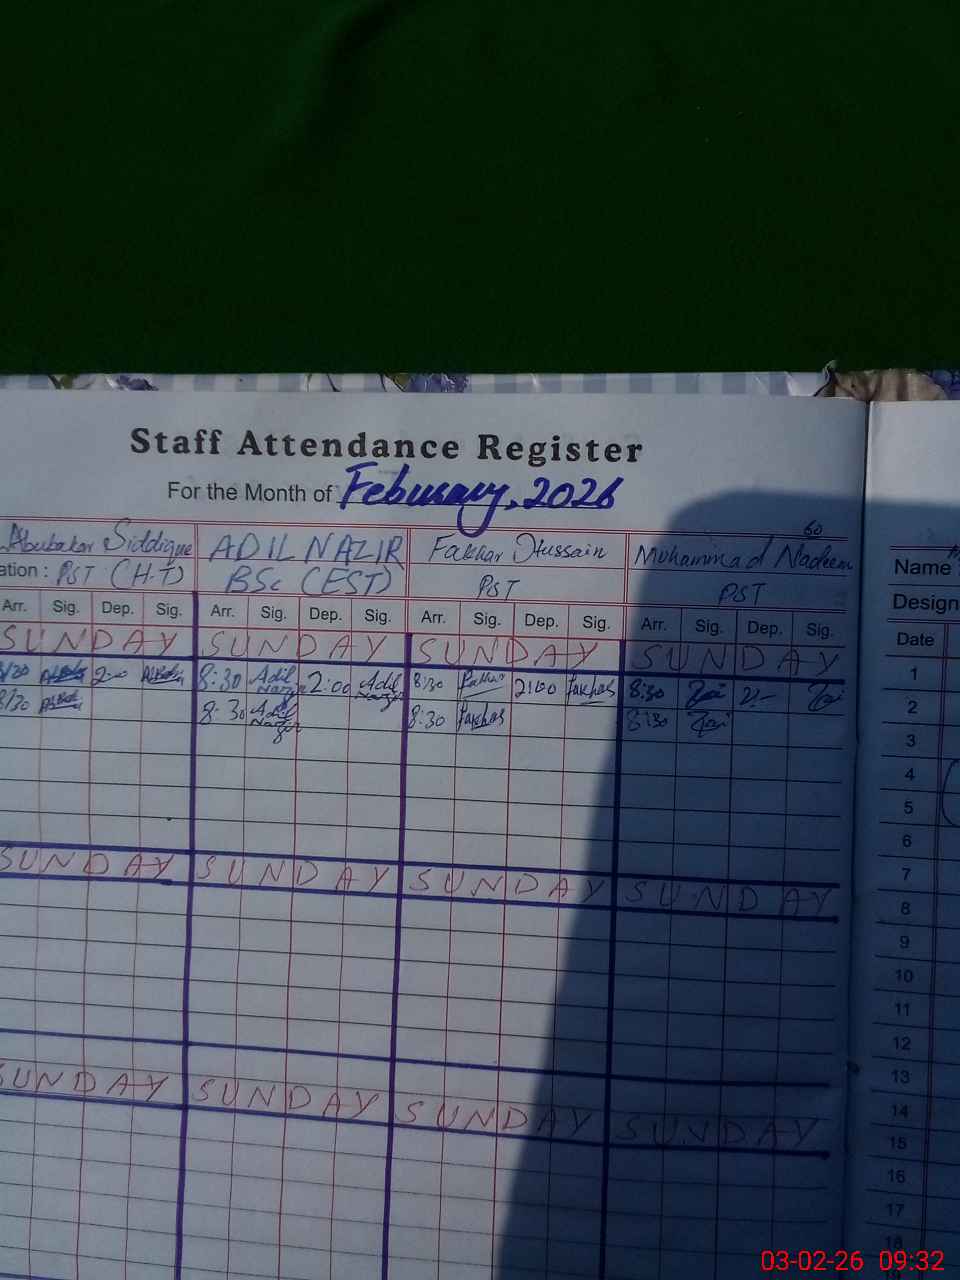 Staff Attendance Register
For the Month of Feburary, 2026
Abubakar Siddique ADIL NAZIR Fakhar Hussain Muhammad Nadeem
ation : PST (H-T) BSc (EST) PST PST
Arr. Sig. Dep. Sig. Arr. Sig. Dep. Sig. Arr. Sig. Dep. Sig. Arr. Sig. Dep. Sig.
SUNDAY SUNDAY SUNDAY SUNDAY
8/30 2:00 8:30 Adil Nazir 2:00 Adil Nazir 8:30 Fakhar 2:00 Fakhar 8:30 2:-
8/30 8:30 Adil Nazir 8:30 Fakhar 8:30
SUNDAY SUNDAY SUNDAY SUNDAY
SUNDAY SUNDAY SUNDAY SUNDAY
Name
Design
Date
1
2
3
4
5
6
7
8
9
10
11
12
13
14
15
16
17
18
03-02-26 09:32